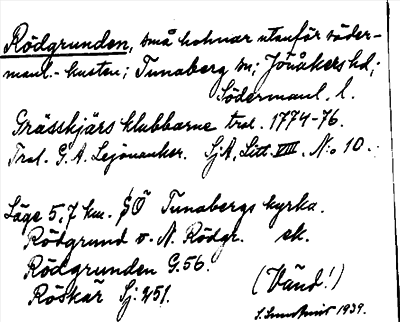 Rödgrunden, små holmar utanför söder-
manl.-kusten; Tunaberg sn; Jönåkers hd;
Södermanl. l.
Grässkjärs klubbarne trol. 1774-76.
Trol. G. A. Lejonanker. SjA, Litt. VIII, N:o 10.
Läge 5,7 km. SÖ Tunabergs kyrka.
Rödgrund o. N. Rödgr. ek.
Rödgrunden G.56.
Röskär Sj: 251.
(Vänd!)
1939.